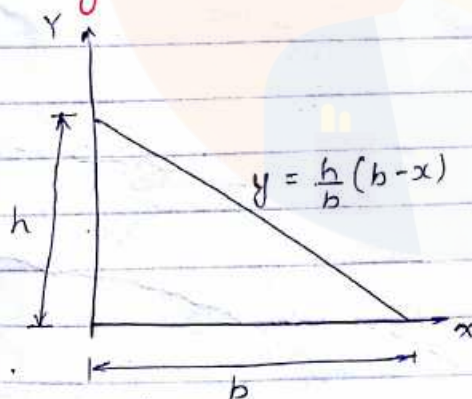 Y
h
y = h/b (b-x)
x
b